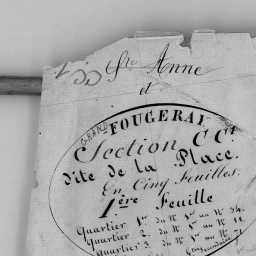 Ste Anne
et
GRAND FOUGERAY
Section CCt
dite de la Place.
En Cinq Feuilles.
1ère Feuille
Quartier 1er du No 1er au No 34.
Quartier 2. du No 1er au No 11.
Quartier 3. du No 1er au No 71.